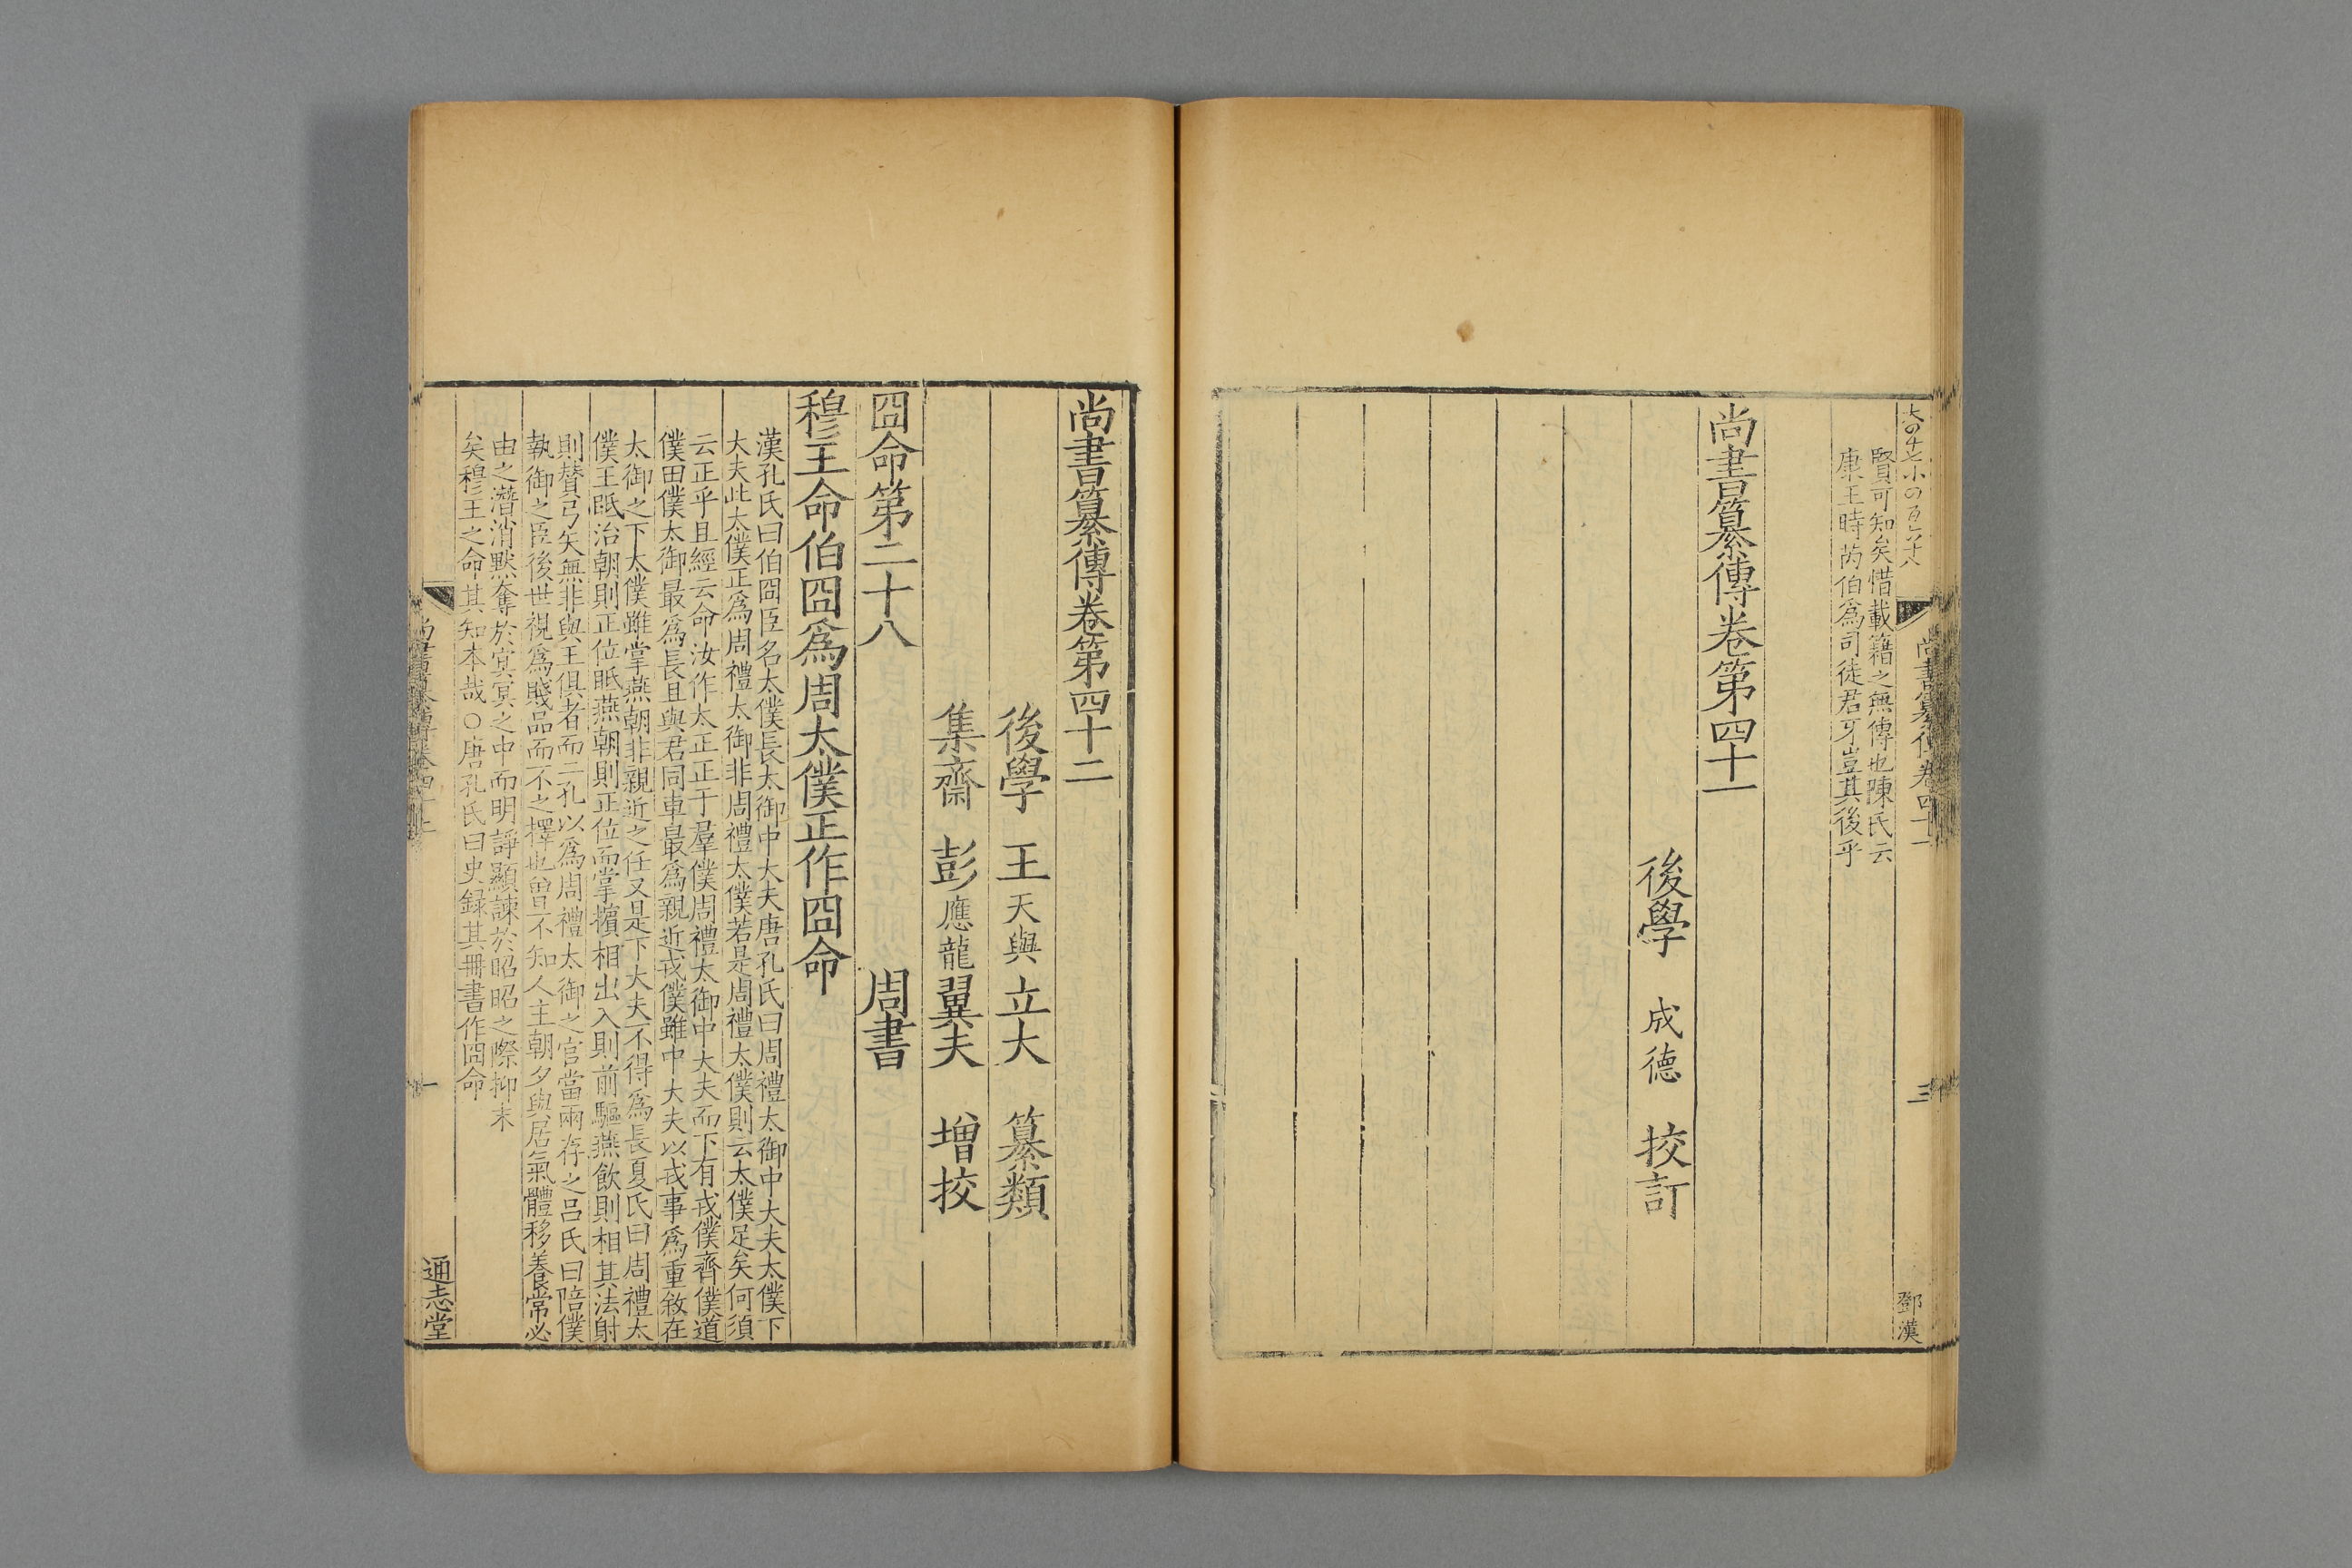 賢可知矣惜載籍之無傳也陳氏云
康王時芮伯爲司徒君牙豈其後乎
尚書纂傳卷第四十一
後學 成德 挍訂
尚書纂傳卷四十一
三
鄧漢
尚書纂傳卷第四十二
後學 王天與立大 纂類
集齋 彭應龍翼夫 增挍
冏命第二十八 周書
穆王命伯冏爲周太僕正作冏命
漢孔氏曰伯冏臣名太僕長太御中大夫唐孔氏曰周禮太御中大夫太僕下
大夫此太僕正爲周禮太御非周禮太僕若是周禮太僕則云太僕足矣何須
云正乎且經云命汝作太正正于羣僕周禮太御中大夫而下有戎僕齊僕道
僕田僕太御最爲長且與君同車最爲親近戎僕雖中大夫以戎事爲重敘在
太御之下太僕雖掌燕朝非親近之任又是下大夫不得爲長夏氏曰周禮太
僕王眂治朝則正位眂燕朝則正位而掌擯相出入則前驅燕飲則相其法射
則贊弓矢無非與王俱者而二孔以爲周禮太御之官當兩存之吕氏曰陪僕
執御之臣後世視爲賤品而不之擇也曾不知人主朝夕與居氣體移養常必
由之潛消默奪於冥冥之中而明諍顯諫於昭昭之際抑末
矣穆王之命其知本哉○唐孔氏曰史録其冊書作冏命
一
通志堂